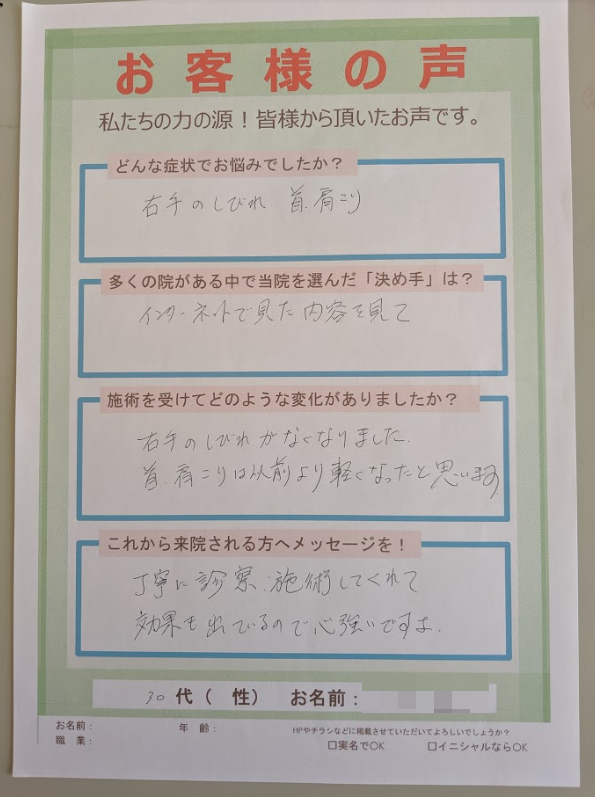 お客様の声
私たちの力の源！皆様から頂いたお声です。
どんな症状でお悩みでしたか？
右手のしびれ、首、肩こり
多くの院がある中で当院を選んだ「決め手」は？
インターネットで見た内容を見て
施術を受けてどのような変化がありましたか？
右手のしびれがなくなりました。
首、肩こりは以前より軽くなったと思います。
これから来院される方へメッセージを！
丁寧に診察、施術してくれて
効果も出ているので心強いですよ。
30代（　性）　お名前：
お名前：　年　齢：
HPやチラシなどに掲載させていただいてよろしいでしょうか？
職　業：　□実名でOK　□イニシャルならOK